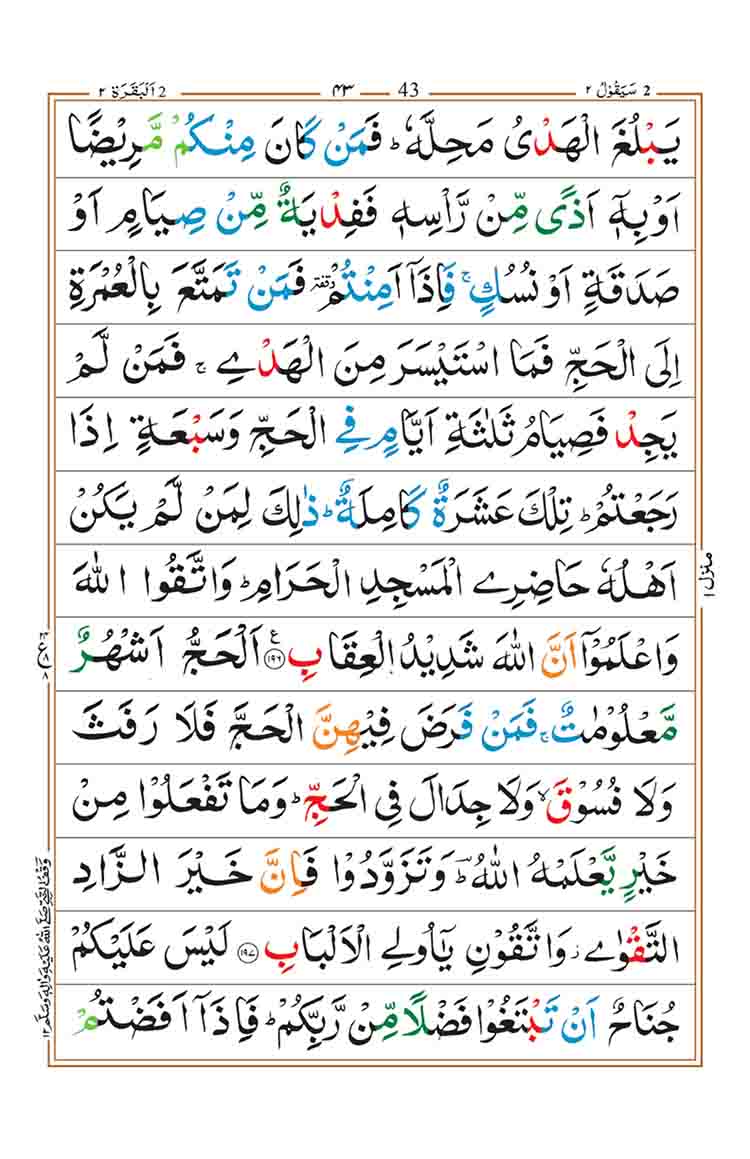 2 سَيَقُوْلُ ٢ 43 ٤٣ 2 اَلْبَقَرَة ٢
يَبْلُغَ الْهَدْیُ مَحِلَّهٗ ؕ فَمَنْ كَانَ مِنْكُمْ مَّرِيْضًا
اَوْ بِهٖۤ اَذًی مِّنْ رَّاْسِهٖ فَفِدْيَةٌ مِّنْ صِيَامٍ اَوْ
صَدَقَةٍ اَوْ نُسُكٍ ۚ فَاِذَاۤ اَمِنْتُمْ وقفة فَمَنْ تَمَتَّعَ بِالْعُمْرَةِ
اِلَى الْحَجِّ فَمَا اسْتَيْسَرَ مِنَ الْهَدْیِ ۚ فَمَنْ لَّمْ
يَجِدْ فَصِيَامُ ثَلٰثَةِ اَيَّامٍ فِی الْحَجِّ وَسَبْعَةٍ اِذَا
رَجَعْتُمْ ؕ تِلْكَ عَشَرَةٌ كَامِلَةٌ ؕ ذٰلِكَ لِمَنْ لَّمْ يَكُنْ
اَهْلُهٗ حَاضِرِی الْمَسْجِدِ الْحَرَامِ ؕ وَاتَّقُوا اللّٰهَ
وَاعْلَمُوْۤا اَنَّ اللّٰهَ شَدِيْدُ الْعِقَابِ ۧ ١٩٦ اَلْحَجُّ اَشْهُرٌ
مَّعْلُوْمٰتٌ ۚ فَمَنْ فَرَضَ فِيْهِنَّ الْحَجَّ فَلَا رَفَثَ
وَلَا فُسُوْقَ ۙ وَلَا جِدَالَ فِی الْحَجِّ ؕ وَمَا تَفْعَلُوْا مِنْ
خَيْرٍ يَّعْلَمْهُ اللّٰهُ ؔ وَتَزَوَّدُوْا فَاِنَّ خَيْرَ الزَّادِ
التَّقْوٰی ؗ وَاتَّقُوْنِ يٰۤاُولِی الْاَلْبَابِ ١٩٧ لَيْسَ عَلَيْكُمْ
جُنَاحٌ اَنْ تَبْتَغُوْا فَضْلًا مِّنْ رَّبِّكُمْ ؕ فَاِذَاۤ اَفَضْتُمْ
منزل ١
وقف النبی صلی الله علیه واله وسلم ١٢